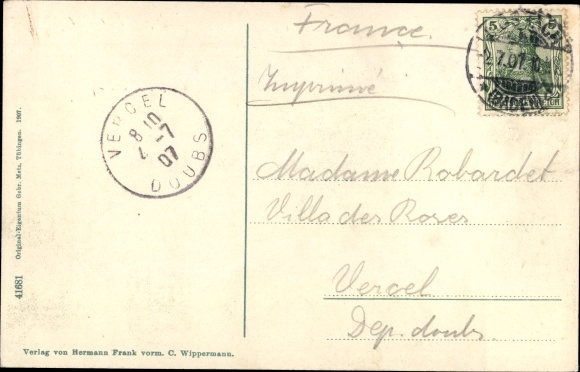 France.
Imprimé
5
2.7.07.10
(BADEN)
VERCEL
8 10
4-7
07
DOUBS
Madame Rabardet
Villa des Roses
Vercel
Dep. doubs
41681 Original-Eigentum Gebr. Metz, Tübingen. 1907.
Verlag von Hermann Frank vorm. C. Wippermann.